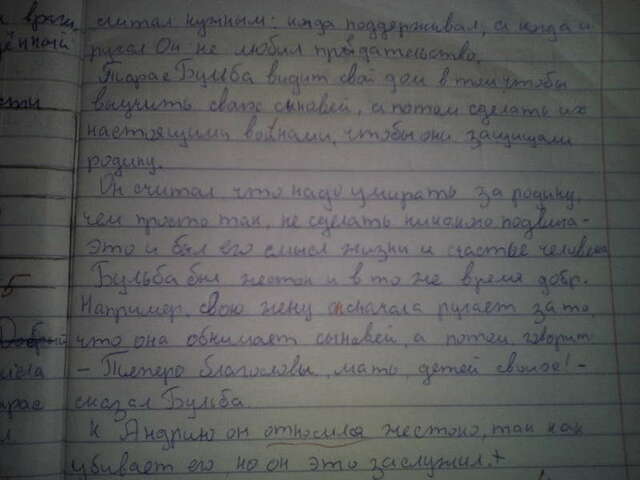 и враги, считал нужным: когда поддерживал, а когда и
ругал Он не любил предательство.
Тарас Бульба видит свой дом в том чтобы
выучить своих сыновей, а потом сделать их
настоящими воинами, чтобы они защищали
родину.
Он считал, что надо умирать за родину,
чем просто так, не сделать никакого подвига -
это и был его смысл жизни и счастье человека
5 Бульба был жесток и в то же время добр.
Например, свою жену сначала ругает за то,
Добрый что она обнимает сыновей, а потом говорит
- Теперо благослови, мать, детей своих! -
сказал Бульба.
К Андрию он относился жестоко, так как
убивает его, но он это заслужил.+